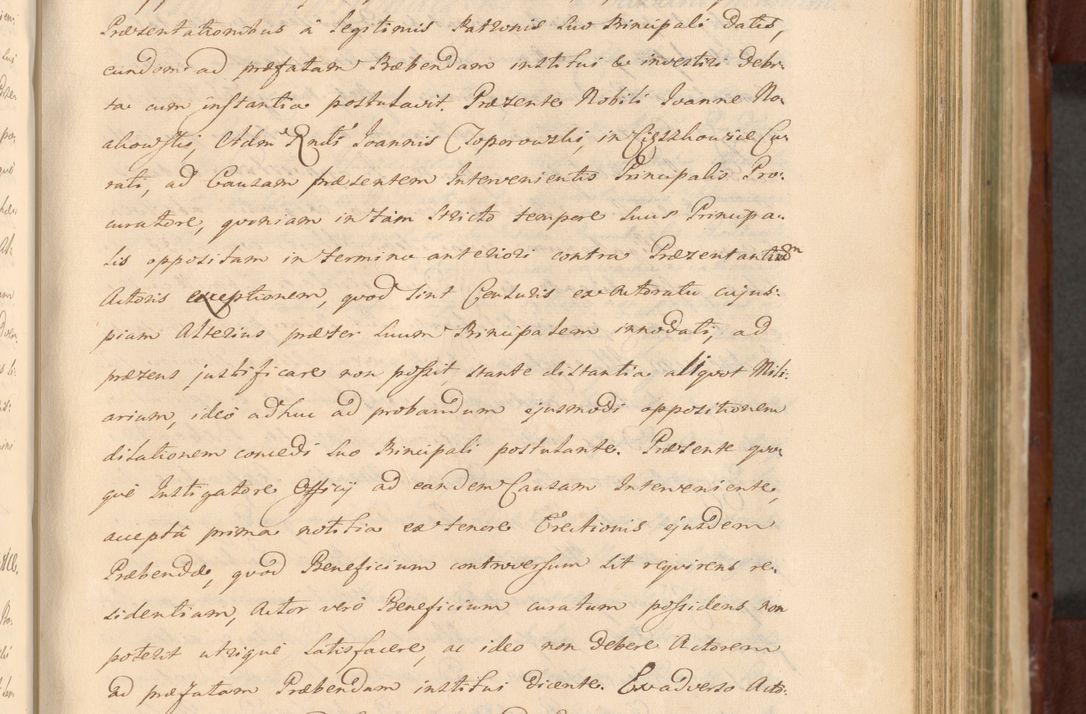 Præsentationibus à Legitimis Patronis Suo Principali datis,
eundem ad præfatam Præbendam institui & investiri debi-
ta cum instantia postulavit. Præsente Nobili Joanne Ro-
akowski, Adm Rndi Joannis Toporowski, in Cięszkowice Cu-
rati, ad Causam præsentem Intervenientis Principalis Pro-
curatore, quoniam in tàm stricto tempore suus Principa-
lis oppositam in termino anteriori contra Præsentantium
Actoris exceptionem, quod sint Censuris ex Actoratu cujus-
piam Alterius præter suum Principalem innodati, ad
præsens justificare non possit, stante distantia aliquot Mili-
arium, ideò adhuc ad probandum ejusmodi oppositionem
dilationem concedi suo Principali postulante. Præsente quo-
què Instigatore Officij ad eandem Causam Interveniente,
acceptâ prima notitia ex tenore Erectionis ejusdem
Præbendæ, quòd Beneficium controversum sit requirens re-
sidentiam, Actor verò Beneficium curatum possidens non
poterit utriquè satisfacere, ac ideo non debere Actorem
ad præfatam Præbendam institui dicente. Ex adverso Acto-